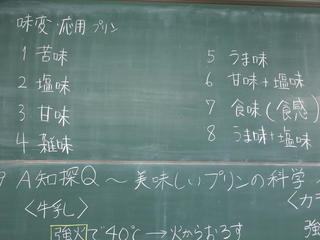 味変・応用プリン
1 苦味
2 塩味
3 甘味
4 雑味
5 うま味
6 甘味+塩味
7 食味(食感)
8 うま味+塩味
A知探Q ~美味しいプリンの科学~
<牛乳>
<カラ
強火で40℃→火からおろす
強